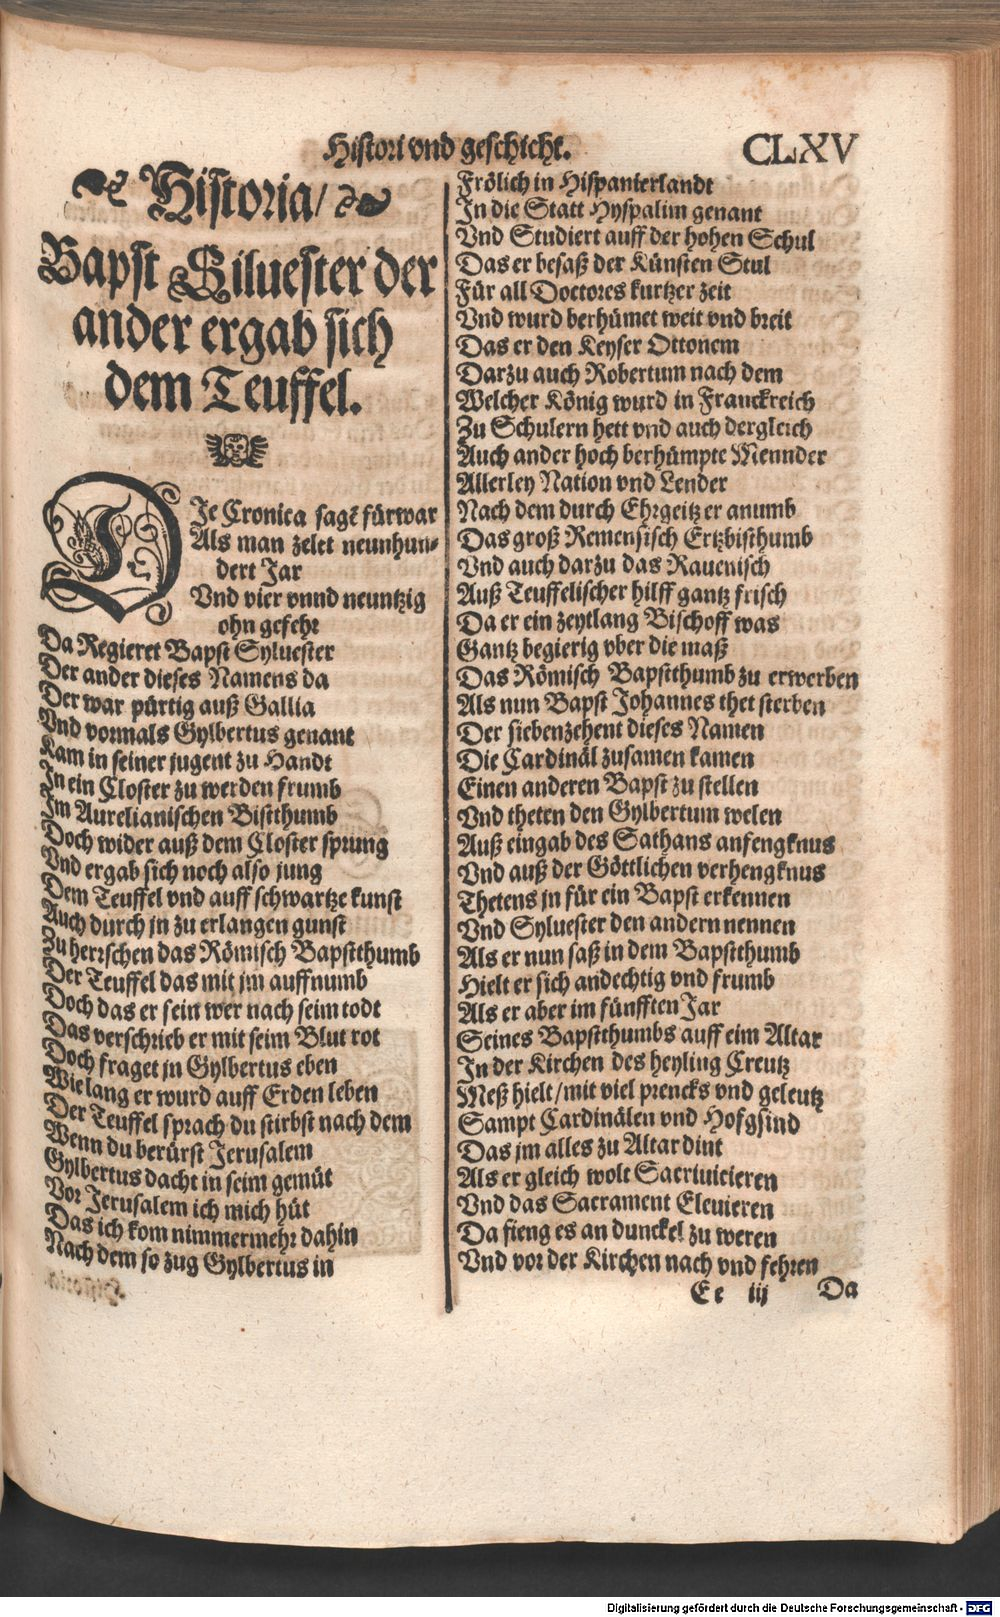 Histori vnd geschicht.
CLXV
Historia/
Bapst Siluester der
ander ergab sich
dem Teuffel.
DJe Cronica sagt fürwar
Als man zelet neunhun-
dert Jar
Vnd vier vnnd neuntzig
ohn gefehr
Da Regieret Bapst Syluester
Der ander dieses Namens da
Der war pürtig auß Gallia
Vnd vormals Gylbertus genant
Kam in seiner jugent zu Handt
In ein Closter zu werden frumb
Im Aurelianischen Bistthumb
Doch wider auß dem Closter sprung
Vnd ergab sich noch also jung
Dem Teuffel vnd auff schwartze kunst
Auch durch jn zu erlangen gunst
Zu herrschen das Römisch Bapstthumb
Der Teuffel das mit jm auffnumb
Doch das er sein wer nach seim todt
Das verschrieb er mit seim Blut rot
Doch fraget jn Gylbertus eben
Wie lang er wurd auff Erden leben
Der Teuffel sprach du stirbst nach dem
Wenn du berürst Jerusalem
Gylbertus dacht in seim gemüt
Vor Jerusalem ich mich hüt
Das ich kom nimmermehr dahin
Nach dem so zug Gylbertus in
Frölich in Hispanierlandt
In die Statt Hyspalim genant
Vnd Studiert auff der hohen Schul
Das er besaß der Künsten Stul
Für all Doctores kurtzer zeit
Vnd wurd berhümet weit vnd breit
Das er den Keyser Ottonem
Darzu auch Robertum nach dem
Welcher König wurd in Franckreich
Zu Schulern hett vnd auch dergleich
Auch ander hoch berhümpte Mennder
Allerley Nation vnd Lender
Nach dem durch Ehrgeitz er anumb
Das groß Remensisch Ertzbisthumb
Vnd auch darzu das Rauenisch
Auß Teuffelischer hilff gantz frisch
Da er ein zeytlang Bischoff was
Gantz begierig vber die maß
Das Römisch Bapstthumb zu erwerben
Als nun Bapst Johannes thet sterben
Der siebenzehent dieses Namen
Die Cardinäl zusamen kamen
Einen anderen Bapst zu stellen
Vnd theten den Gylbertum welen
Auß eingab des Sathans anfengknus
Vnd auß der Göttlichen verhengknus
Thetens jn für ein Bapst erkennen
Vnd Syluester den andern nennen
Als er nun saß in dem Bapstthumb
Hielt er sich andechtig vnd frumb
Als er aber im fünfften Jar
Seines Bapstthumbs auff eim Altar
In der Kirchen des heyling Creutz
Meß hielt/mit viel prencks vnd geleutz
Sampt Cardinälen vnd Hofgsind
Das jm alles zu Altar dint
Als er gleich wolt Sacriuicieren
Vnd das Sacrament Eleuieren
Da fieng es an dunckel zu weren
Vnd vor der Kirchen nach vnd fehren
Ee iij Da
Digitalisierung gefördert durch die Deutsche Forschungsgemeinschaft - DFG